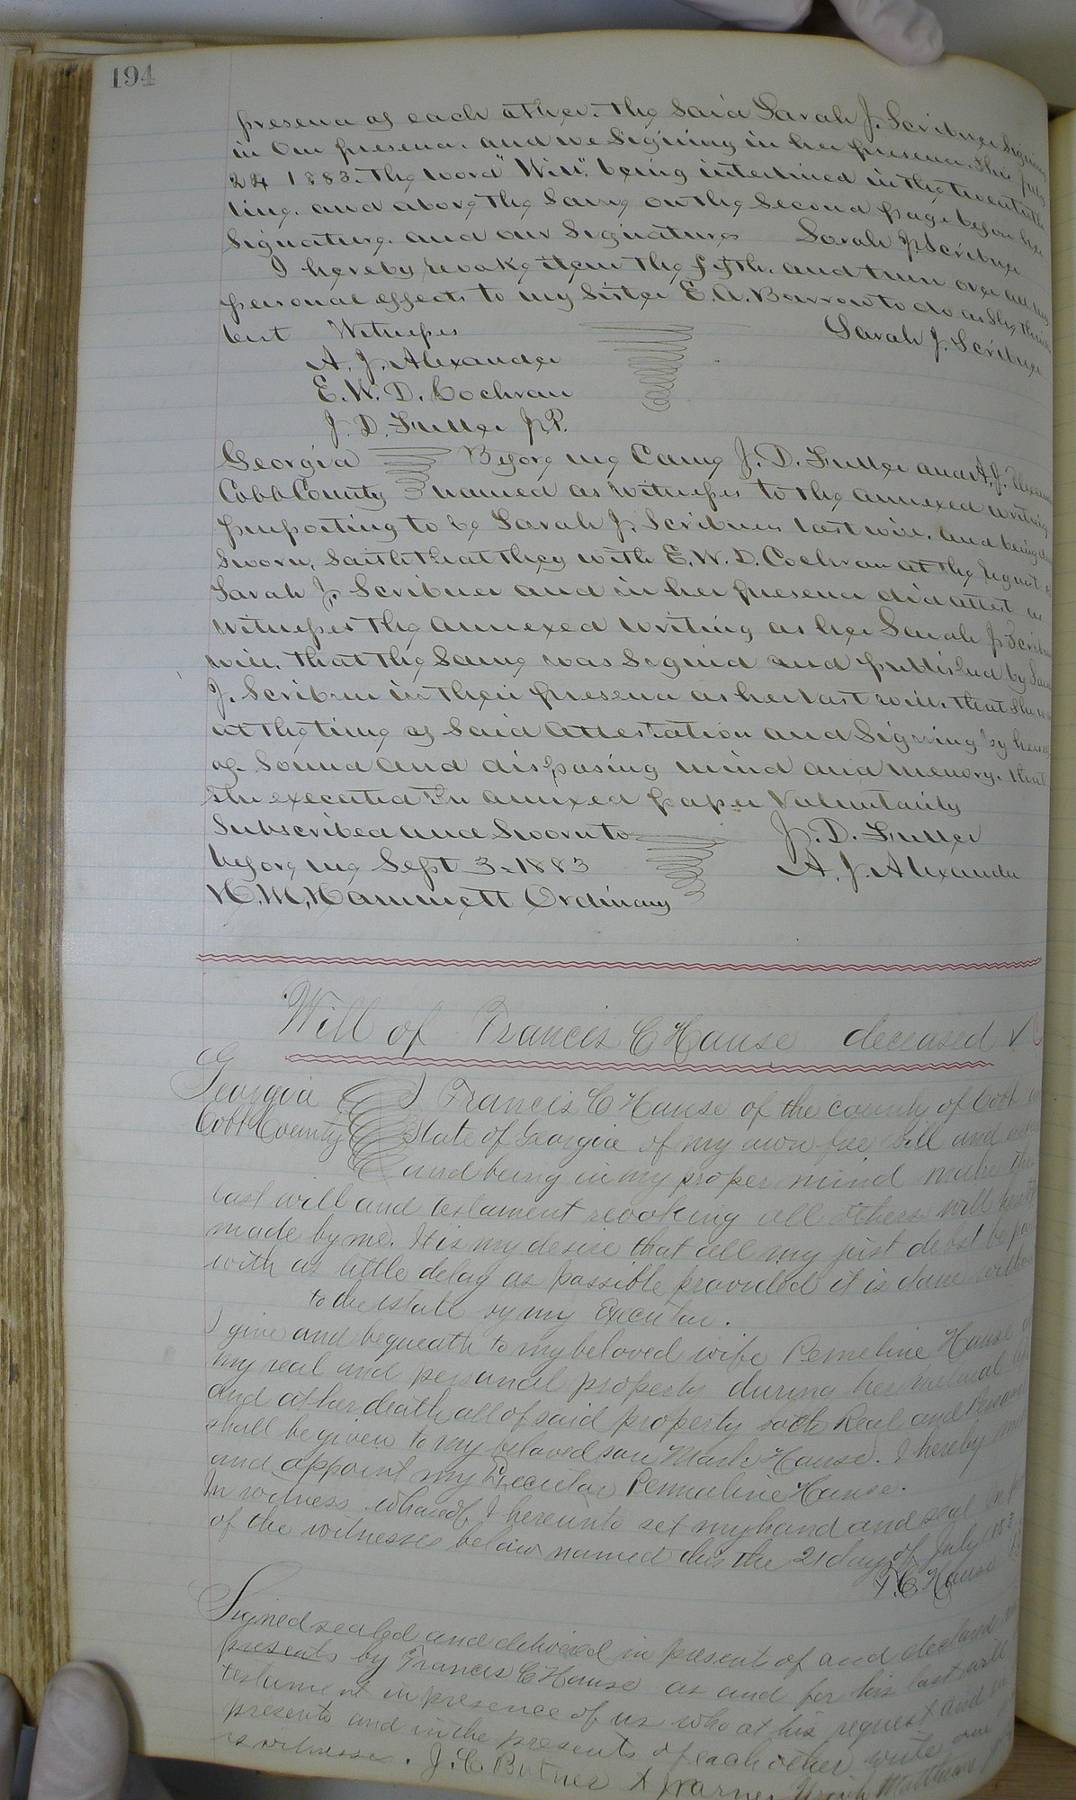 194
presence of each other. The Said Sarah J. Scribner Signing
in Our presence. and we Signing in her presence. This July
24 1883. The word "Will" being interlined in the twentieth
line. and above the Same on the Second page before her
Signature. and our Signatures Sarah J Scribner
I hereby revoke item the fifth. and turn over all my
personal effects to my Sister E. A. Barrow to do as She thinks
best Witnesses Sarah J. Scribner
A. J. Alexander
E. W. D. Cochran
J. D. Fuller J.P.
Georgia Before me Came J. D. Fuller and A. J. Alexander
Cobb County named as witnesses to the annexed writing
purporting to be Sarah J. Scribners last will. and being
Sworn. Saith that they with E. W. D. Cochran at the request of
Sarah J. Scribner and in her presence did attest as
witnesses the annexed writing as her Sarah J. Scribners
will. that the Same was Signed and published by Sarah
J. Scribner in their presence as her last will. that She was
at the time of Said attestation and Signing by her
of Sound and disposing mind and memory. that
She executed the annexed paper Voluntarily
Subscribed and Sworn to J. D. Fuller
before me Sept 3. 1883 A. J. Alexander
H. M. Hammett Ordinary
Will of Francis C Hause deceased
Georgia I Francis C Hause of the county of Cobb and
Cobb County State of Georgia of my own free will and
and being in my proper mind make this
last will and testament revoking all others will
made by me. It is my desire that all my just debts be paid
with as little delay as possible provided it is done without
to the estate by my Executor.
I give and bequeath to my beloved wife Permeline Hause
my real and personal property during her natural life
and at her death all of said property both Real and Personal
shall be given to my beloved son Mark Hause. I hereby
and appoint my Executor Permeline Hause.
In witness whereof I hereunto set my hand and seal in
of the witnesses below named this the 21 day of July 188
F. C Hause
Signed sealed and delivered in present of and declared
presents by Francis C Hause as and for his last will
testament in presence of us who at his request and in
presents and in the presents of each other write our
as witnesses. J. C Butner Warner